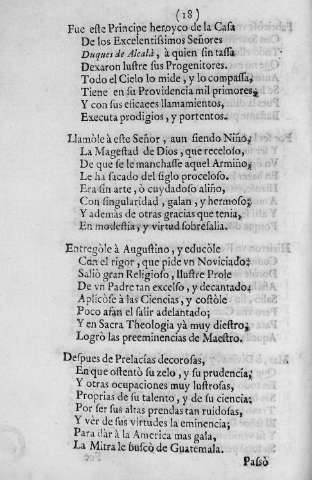 (18)
Fue este Principe heroyco de la Casa
De los Excelentissimos Señores
Duques de Alcalà, à quien sin tassa
Dexaron lustre sus Progenitores.
Todo el Cielo lo mide, y lo compassa,
Tiene en su Providencia mil primores,
Y con sus eficaces llamamientos,
Executa prodigios, y portentos.
Llamòle à este Señor, aun siendo Niño,
La Magestad de Dios, que receloso,
De que se le manchasse aquel Armiño,
Le ha sacado del siglo proceloso.
Era sin arte, ò cuydadoso aliño,
Con singularidad, galan, y hermoso;
Y ademàs de otras gracias que tenia,
En modestia, y virtud sobresalia.
Entregòle à Augustino, y educòle
Con el rigor, que pide vn Noviciado:
Saliò gran Religioso, Ilustre Prole
De vn Padre tan excelso, y decantado.
Aplicòse à las Ciencias, y costòle
Poco afan el salir adelantado;
Y en Sacra Theologia yà muy diestro,
Logrò las preeminencias de Maestro.
Despues de Prelacias decorosas,
En que ostentò su zelo, y su prudencia,
Y otras ocupaciones muy lustrosas,
Proprias de su talento, y de su ciencia;
Por ser sus altas prendas tan ruidosas,
Y vèr de sus virtudes la eminencia;
Para dàr à la America mas gala,
La Mitra le buscò de Guatemala.
Passò